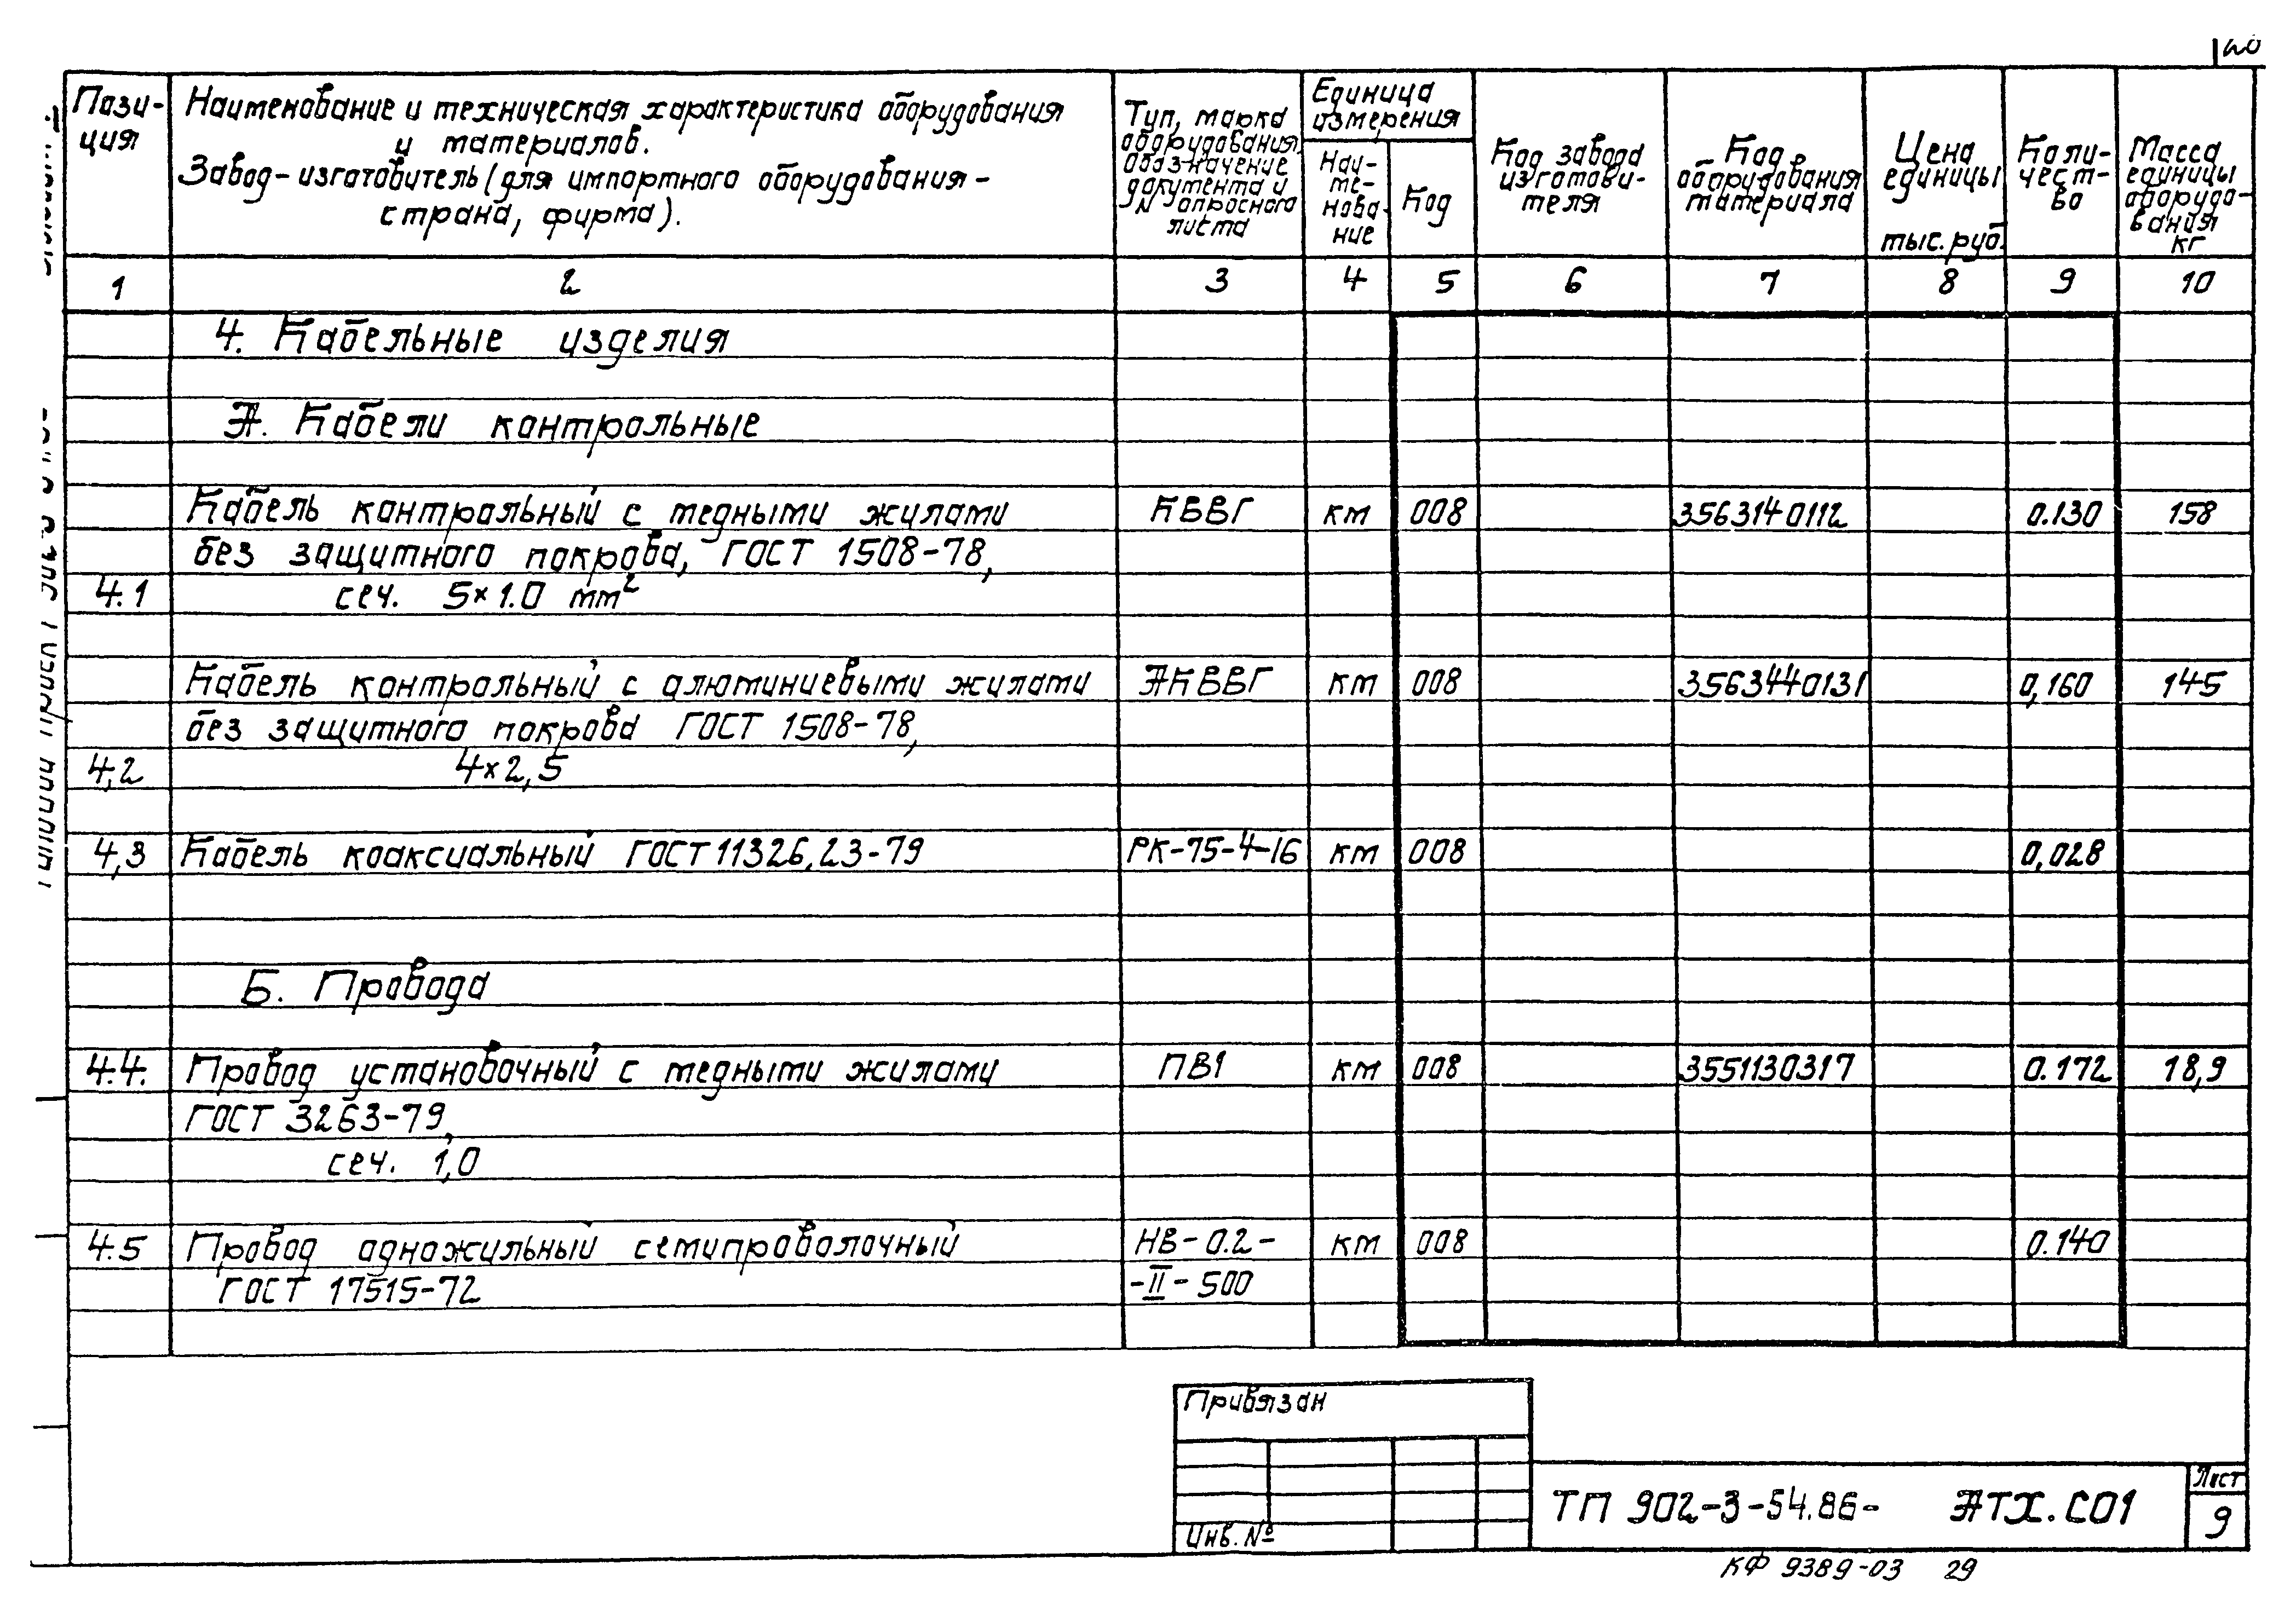 Пози-
ция
Наименование и техническая характеристика оборудования
и материалов.
Завод-изготовитель (для импортного оборудования-
страна, фирма).
Тип, марка
оборудования,
обозначение
документа и
№ опросного
листа
Единица
измерения
Наи-
ме-
нова-
ние
Код
Код завода
изготови-
теля
Код
оборудования
материала
Цена
единицы
тыс. руб.
Коли-
чест-
во
Масса
единицы
оборудо-
вания
кг
1 2 3 4 5 6 7 8 9 10
4. Кабельные изделия
А. Кабели контрольные
Кабель контрольный с медными жилами КВВГ км 008 3563140112 0.130 158
без защитного покрова, ГОСТ 1508-78,
4.1 сеч. 5×1.0 мм²
Кабель контрольный с алюминиевыми жилами АКВВГ км 008 3563440131 0,160 145
без защитного покрова ГОСТ 1508-78,
4,2 4×2,5
4,3 Кабель коаксиальный ГОСТ 11326.23-79 РК-75-4-16 км 008 0,028
Б. Провода
4.4. Провод установочный с медными жилами ПВ1 км 008 3551130317 0.172 18,9
ГОСТ 3263-79,
сеч. 1,0
4.5 Провод одножильный семипроволочный НВ-0.2- км 008 0.140
ГОСТ 17515-72 -II-500
Привязан
Инв. №
ТП 902-3-54.86- АТХ.СО1
Лист
9
КФ 9389-03 29